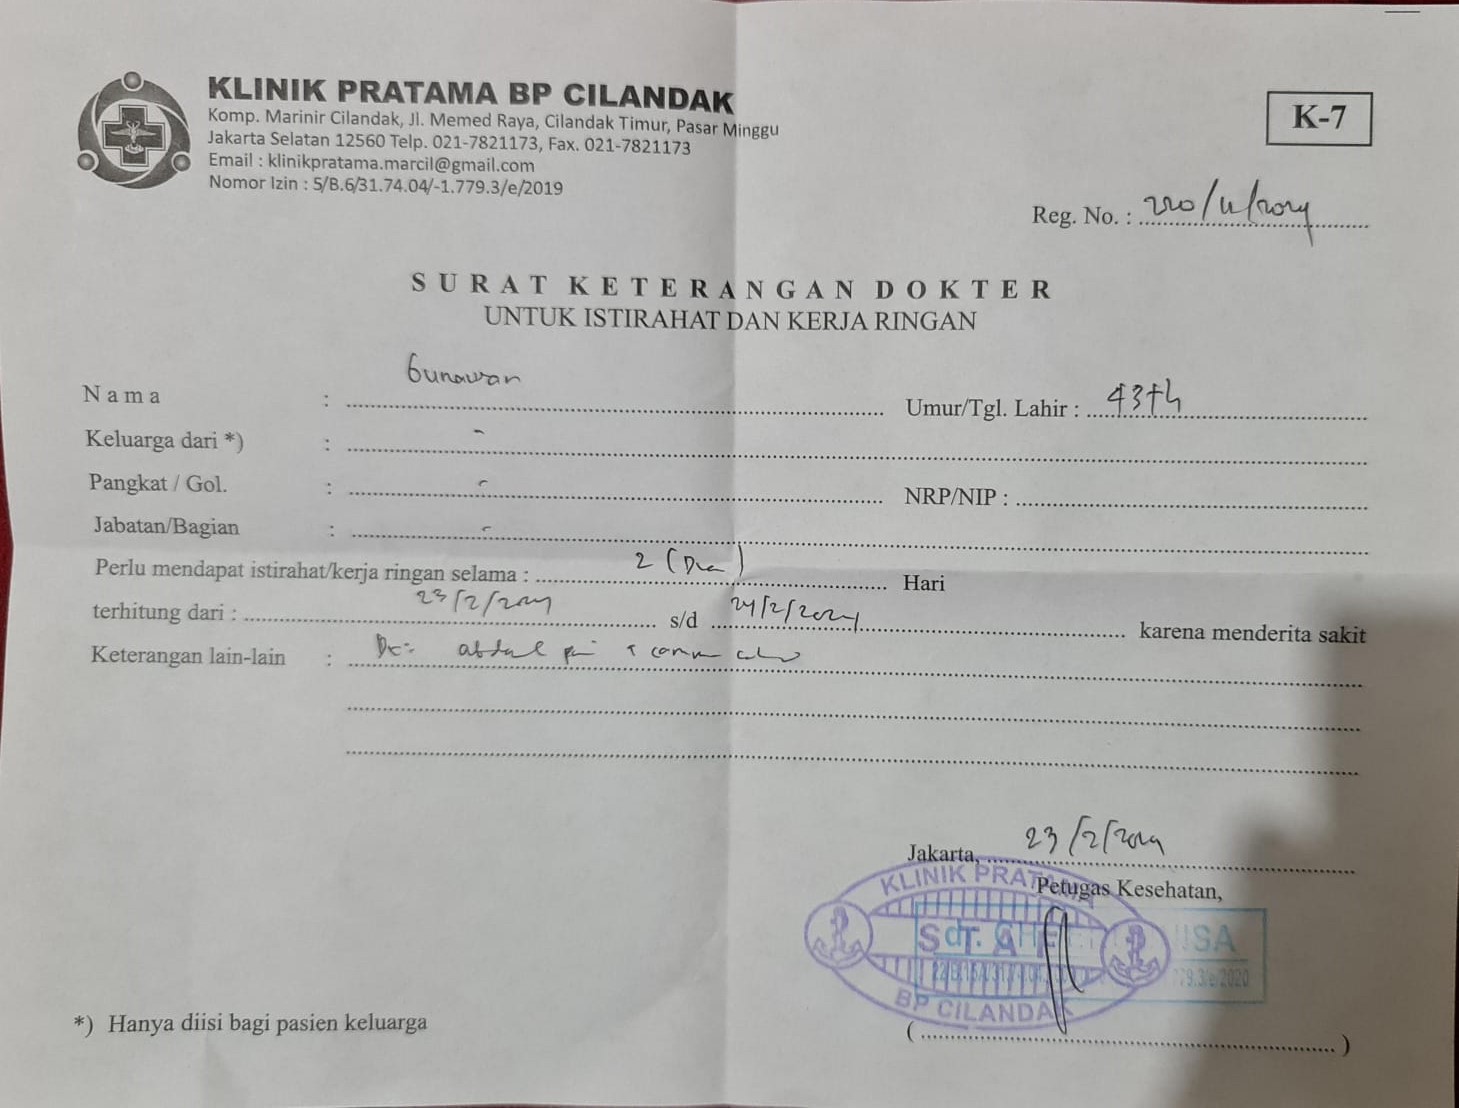 KLINIK PRATAMA BP CILANDAK
Komp. Marinir Cilandak, Jl. Memed Raya, Cilandak Timur, Pasar Minggu
Jakarta Selatan 12560 Telp. 021-7821173, Fax. 021-7821173
Email : klinikpratama.marcil@gmail.com
Nomor Izin : 5/B.6/31.74.04/-1.779.3/e/2019
K-7
Reg. No. :
SURAT KETERANGAN DOKTER
UNTUK ISTIRAHAT DAN KERJA RINGAN
Nama : Gunawan Umur/Tgl. Lahir : 43th
Keluarga dari *) : -
Pangkat / Gol. : - NRP/NIP :
Jabatan/Bagian : -
Perlu mendapat istirahat/kerja ringan selama : 2 (Dua) Hari
terhitung dari : 23/2/2024 s/d 24/2/2024 karena menderita sakit
Keterangan lain-lain :
Jakarta, 23/2/2024
Petugas Kesehatan,
KLINIK PRATAMA
BP CILANDAK
*) Hanya diisi bagi pasien keluarga
( )